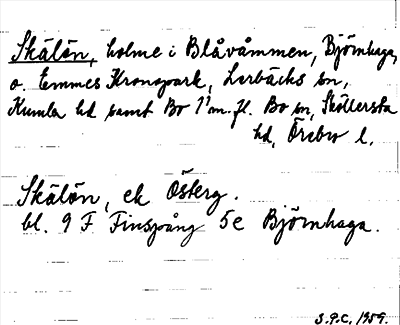 Skälön, holme i Blåvåmmen, Björnhaga,
o. Emmes Kronopark, Lerbäcks sn,
Kumla hd samt Bo 1¹ m. fl. Bo sn, Sköllersta
hd, Örebro l.
Skälön, ek Österg.
bl. 9 F Finspång 5e Björnhaga.
S.G.C. 1959.